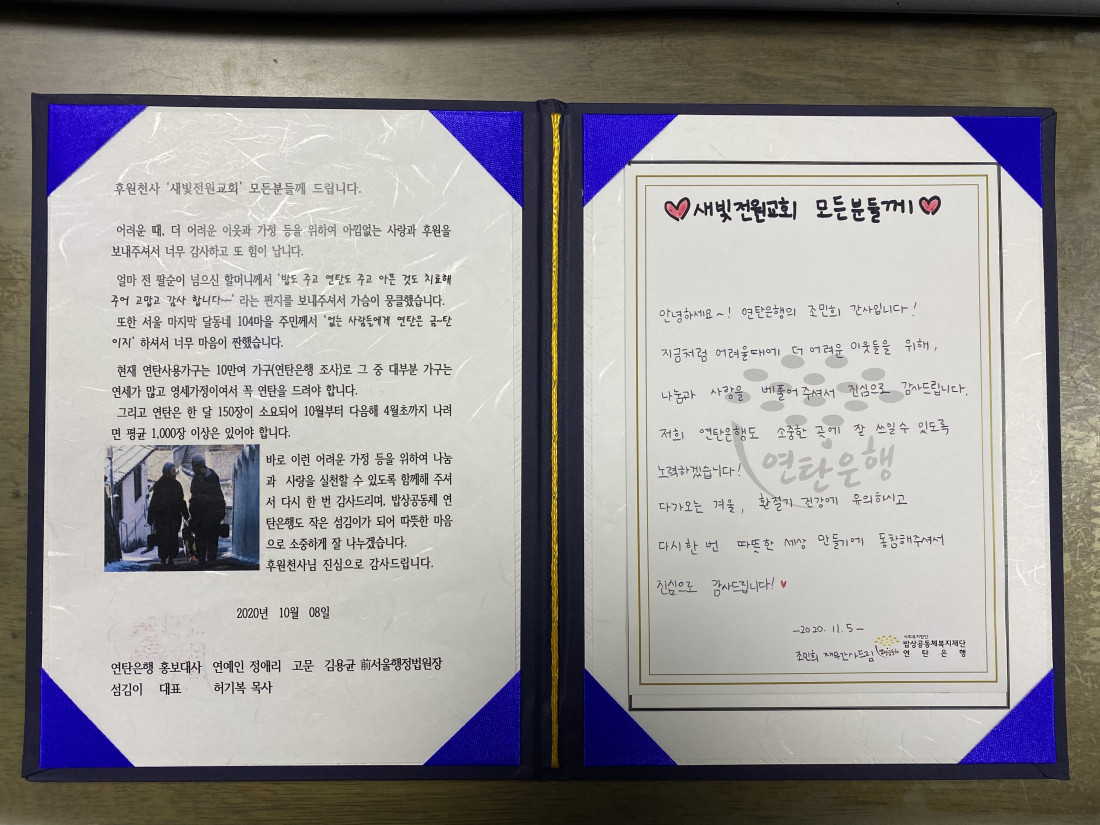 후원천사 '새빛전원교회' 모든분들께 드립니다.
어려운 때, 더 어려운 이웃과 가정 등을 위하여 아낌없는 사랑과 후원을
보내주셔서 너무 감사하고 또 힘이 납니다.
얼마 전 팔순이 넘으신 할머니께서 '밥도 주고 연탄도 주고 아픈 것도 치료해
주어 고맙고 감사 합니다~' 라는 편지를 보내주셔서 가슴이 뭉클했습니다.
또한 서울 마지막 달동네 104마을 주민께서 '없는 사람들에게 연탄은 금-탄
이지' 하셔서 너무 마음이 짠했습니다.
현재 연탄사용가구는 10만여 가구(연탄은행 조사)로 그 중 대부분 가구는
연세가 많고 영세가정이여서 꼭 연탄을 드려야 합니다.
그리고 연탄은 한 달 150장이 소요되어 10월부터 다음해 4월초까지 나려
면 평균 1,000장 이상은 있어야 합니다.
바로 이런 어려운 가정 등을 위하여 나눔
과 사랑을 실천할 수 있도록 함께해 주셔
서 다시 한 번 감사드리며, 밥상공동체 연
탄은행도 작은 섬김이가 되어 따뜻한 마음
으로 소중하게 잘 나누겠습니다.
후원천사님 진심으로 감사드립니다.
2020년 10월 08일
연탄은행 홍보대사 연예인 정애리 고문 김용균 前서울행정법원장
섬김이 대표 허기복 목사
새빛전원교회 모든분들께!
안녕하세요~! 연탄은행의 조민희 간사입니다!
지금처럼 어려울때에 더 어려운 이웃들을 위해,
나눔과 사랑을 베풀어주셔서 진심으로 감사드립니다.
저희 연탄은행도 소중한 곳에 잘 쓰일수 있도록
노력하겠습니다!
연탄은행
다가오는 겨울, 환절기 건강에 유의하시고
다시한번 따뜻한 세상 만들기에 동참해주셔서
진심으로 감사드립니다!
-2020. 11. 5-
조민희 재무간사드림
사회복지법인
밥상공동체복지재단
연탄은행